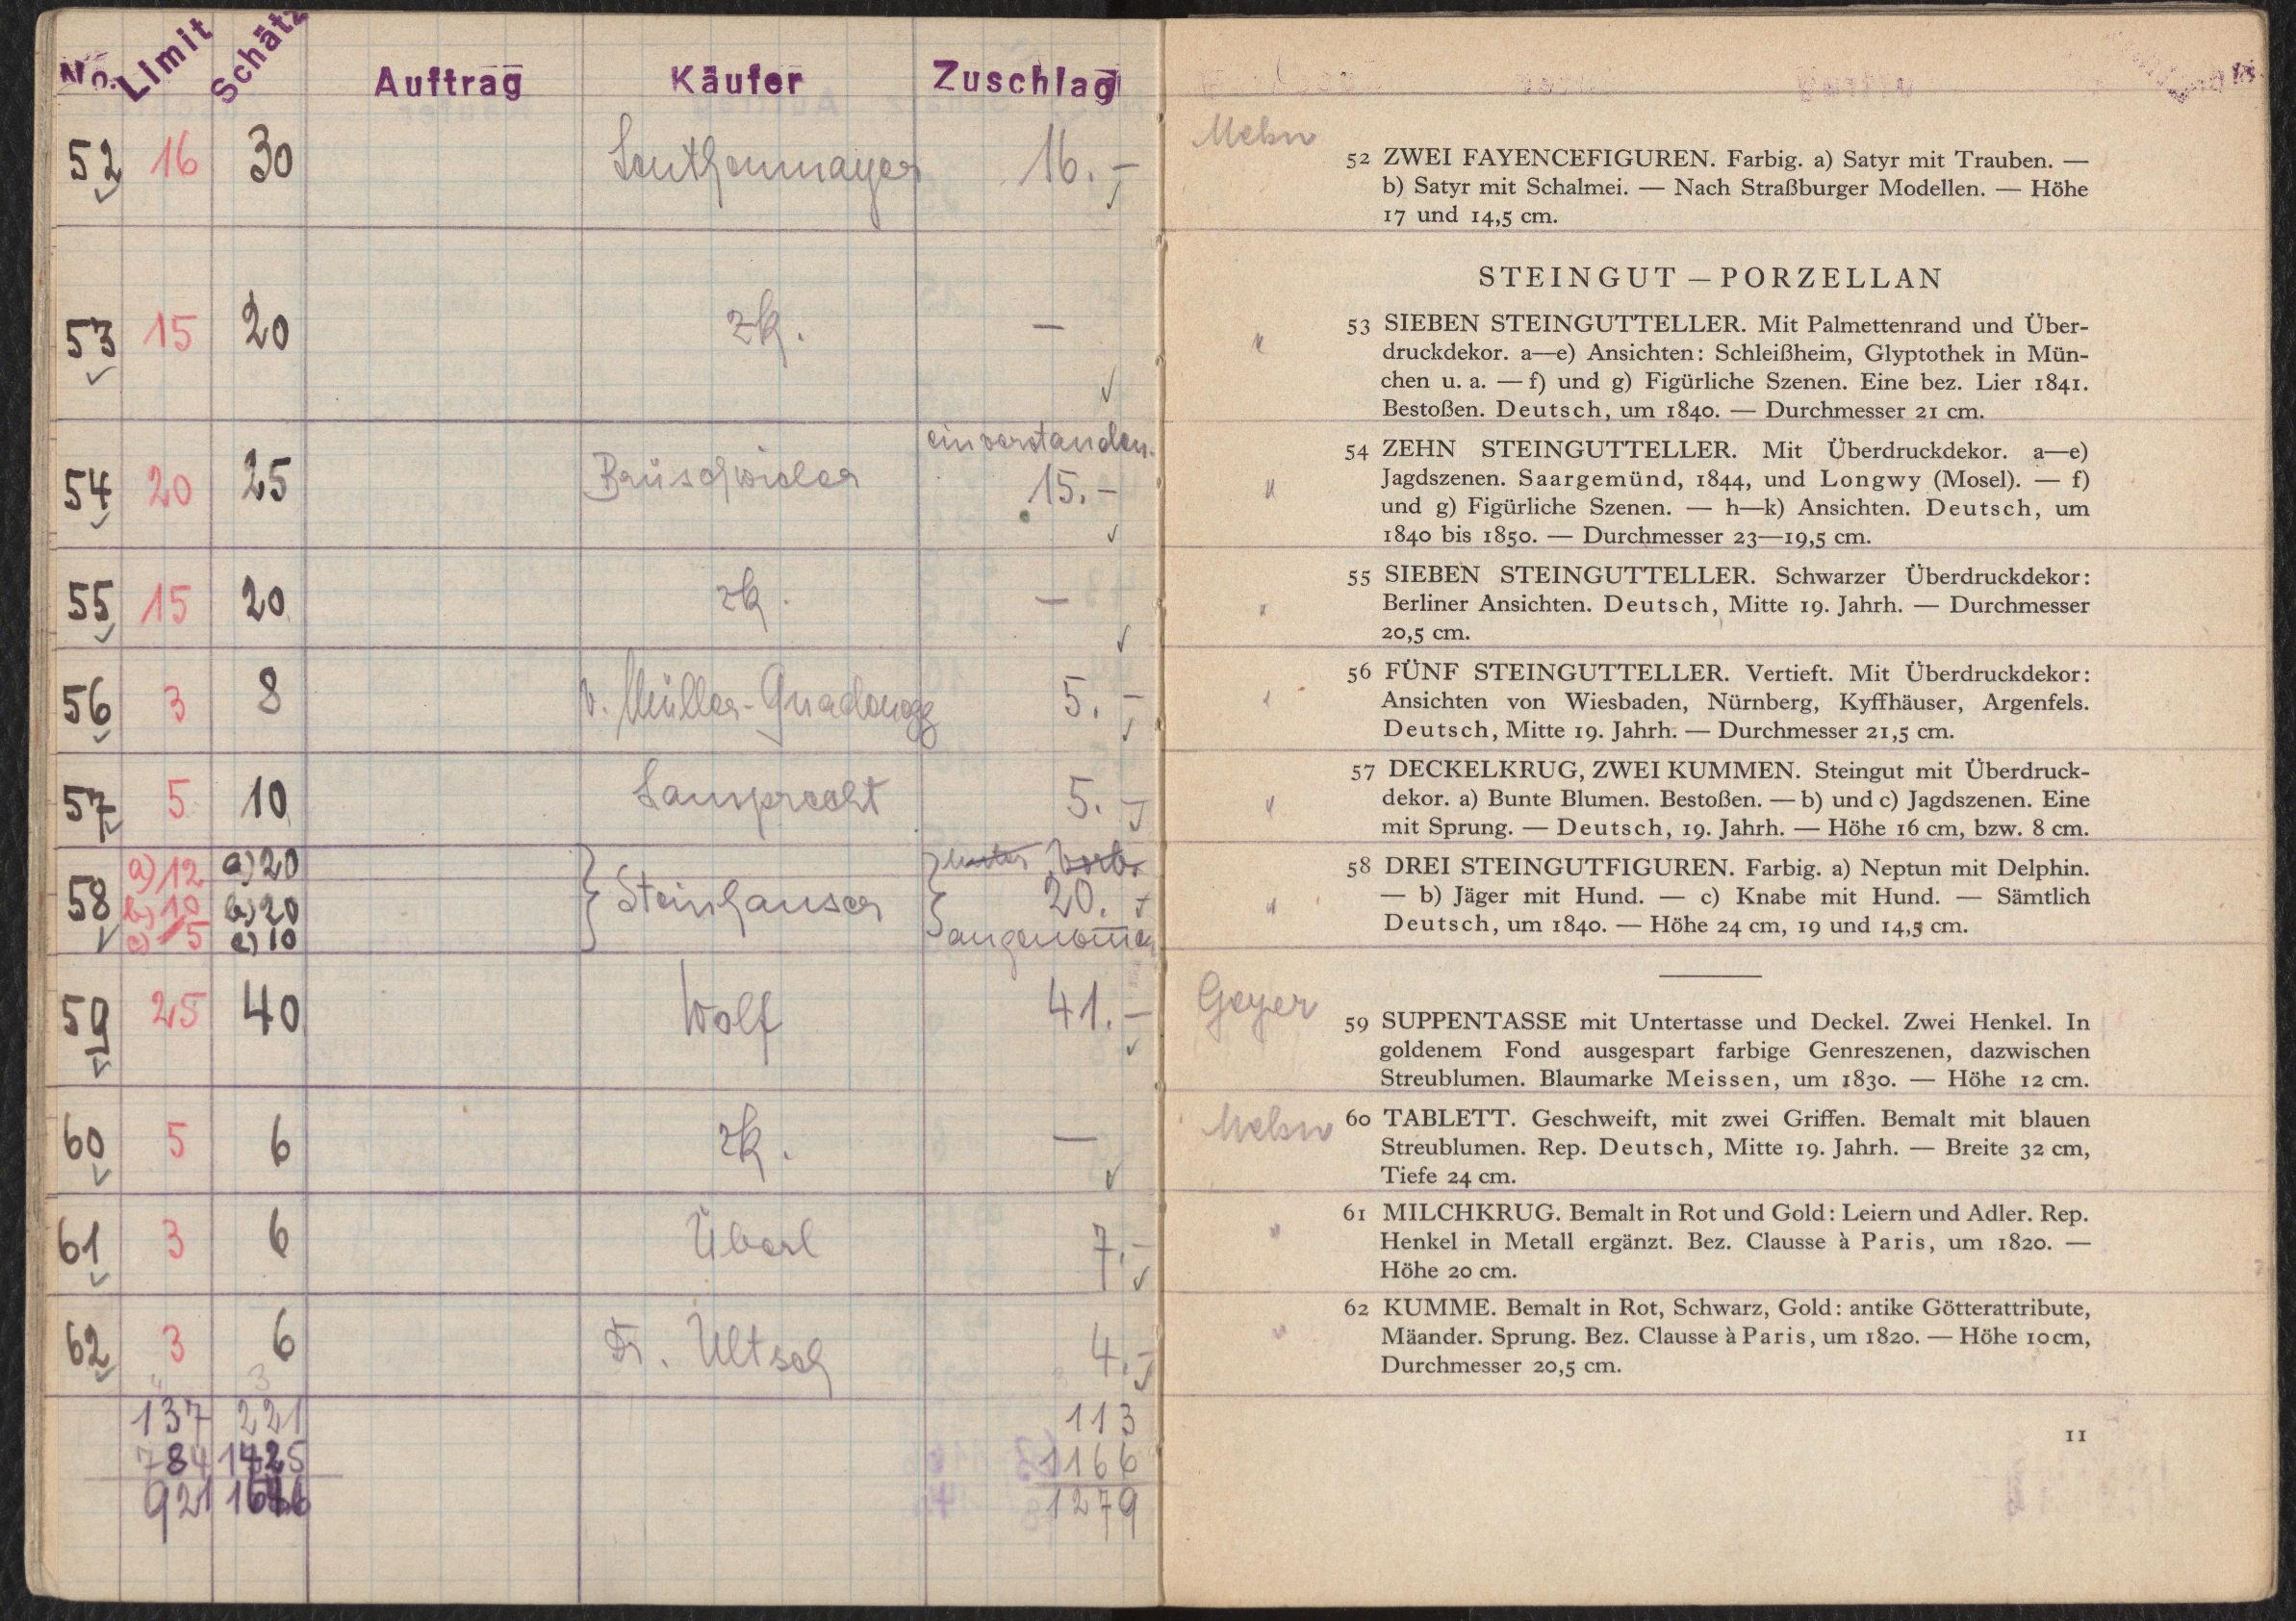 No. Limit Schätz Auftrag Käufer Zuschlag
52 16 30 Leuthenmayer 16.-
53 15 20 zk. —
einverstanden.
54 20 25 Brüschwiler 15.-
55 15 20 zk. —
56 3 8 v. Müller-Gnadenegg 5.-
57 5 10 Lamprecht 5.-
a) 12 a) 20 unter Vorb.
58 b) 10 b) 20 Steinhauser 20.
c) 5 c) 10 angenommen
59 25 40 Wolf 41.-
60 5 6 zk. —
61 3 6 Überl 7.-
62 3 6 Dr. Ultsch 4.-
137 221 113
784 1425 1166
921 1646 1279
52 ZWEI FAYENCEFIGUREN. Farbig. a) Satyr mit Trauben. —
b) Satyr mit Schalmei. — Nach Straßburger Modellen. — Höhe
17 und 14,5 cm.
STEINGUT – PORZELLAN
53 SIEBEN STEINGUTTELLER. Mit Palmettenrand und Über-
druckdekor. a—e) Ansichten: Schleißheim, Glyptothek in Mün-
chen u. a. — f) und g) Figürliche Szenen. Eine bez. Lier 1841.
Bestoßen. Deutsch, um 1840. — Durchmesser 21 cm.
54 ZEHN STEINGUTTELLER. Mit Überdruckdekor. a—e)
Jagdszenen. Saargemünd, 1844, und Longwy (Mosel). — f)
und g) Figürliche Szenen. — h—k) Ansichten. Deutsch, um
1840 bis 1850. — Durchmesser 23—19,5 cm.
55 SIEBEN STEINGUTTELLER. Schwarzer Überdruckdekor:
Berliner Ansichten. Deutsch, Mitte 19. Jahrh. — Durchmesser
20,5 cm.
56 FÜNF STEINGUTTELLER. Vertieft. Mit Überdruckdekor:
Ansichten von Wiesbaden, Nürnberg, Kyffhäuser, Argenfels.
Deutsch, Mitte 19. Jahrh. — Durchmesser 21,5 cm.
57 DECKELKRUG, ZWEI KUMMEN. Steingut mit Überdruck-
dekor. a) Bunte Blumen. Bestoßen. — b) und c) Jagdszenen. Eine
mit Sprung. — Deutsch, 19. Jahrh. — Höhe 16 cm, bzw. 8 cm.
58 DREI STEINGUTFIGUREN. Farbig. a) Neptun mit Delphin.
— b) Jäger mit Hund. — c) Knabe mit Hund. — Sämtlich
Deutsch, um 1840. — Höhe 24 cm, 19 und 14,5 cm.
Geyer
59 SUPPENTASSE mit Untertasse und Deckel. Zwei Henkel. In
goldenem Fond ausgespart farbige Genreszenen, dazwischen
Streublumen. Blaumarke Meissen, um 1830. — Höhe 12 cm.
60 TABLETT. Geschweift, mit zwei Griffen. Bemalt mit blauen
Streublumen. Rep. Deutsch, Mitte 19. Jahrh. — Breite 32 cm,
Tiefe 24 cm.
61 MILCHKRUG. Bemalt in Rot und Gold: Leiern und Adler. Rep.
Henkel in Metall ergänzt. Bez. Clausse à Paris, um 1820. —
Höhe 20 cm.
62 KUMME. Bemalt in Rot, Schwarz, Gold: antike Götterattribute,
Mäander. Sprung. Bez. Clausse à Paris, um 1820. — Höhe 10 cm,
Durchmesser 20,5 cm.
11